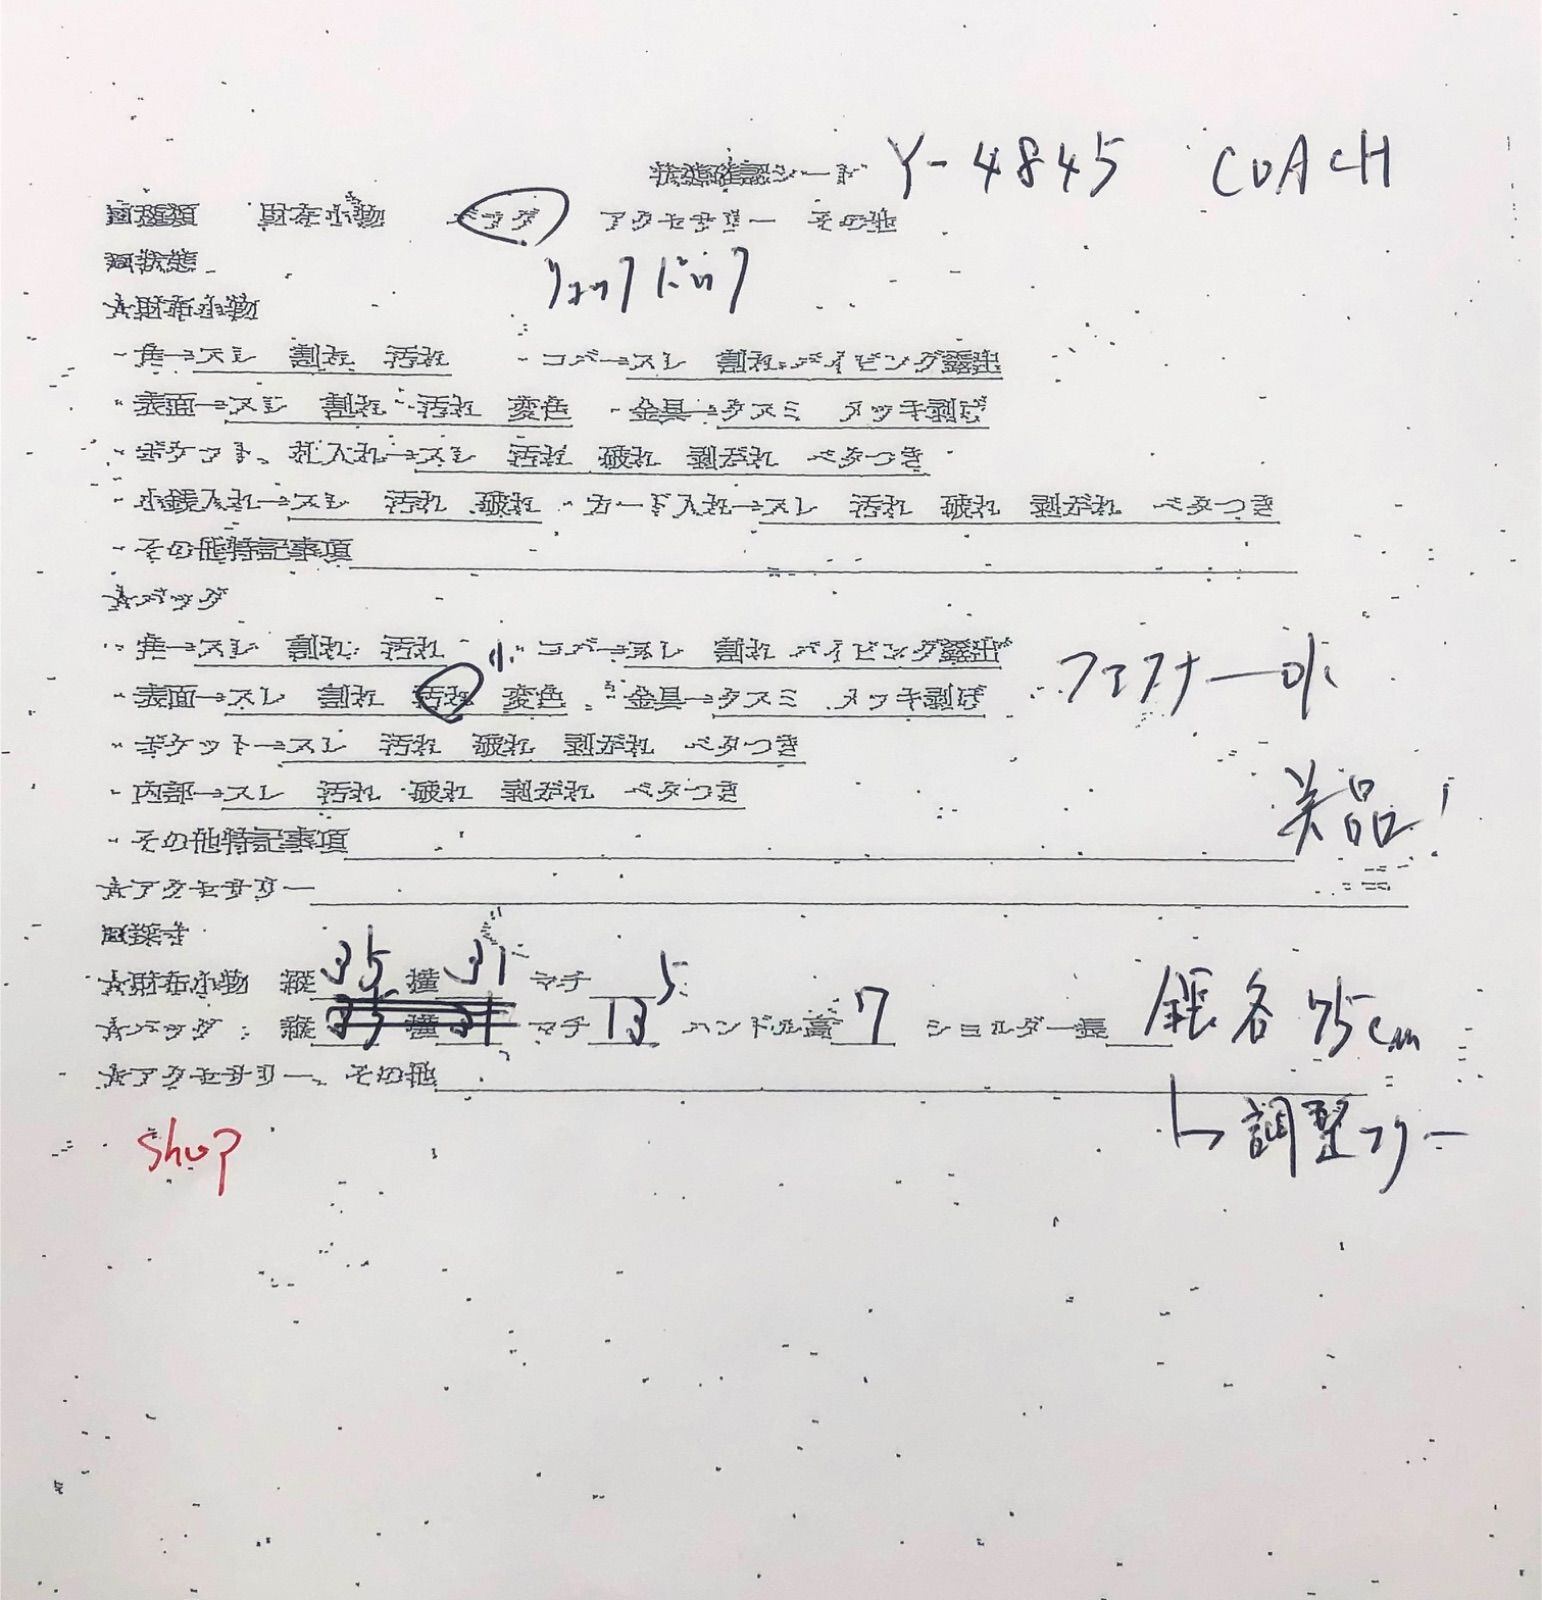 状態確認シート Y-4845 COACH
回種類 財布小物 バッグ アクセサリー その他
回状態 リュックバック
☆財布小物
・角→スレ 割れ 汚れ ・コバ→スレ 割れ パイピング露出
・表面→スレ 割れ 汚れ 変色 ・金具→クスミ メッキ剥げ
・ポケット、札入れ→スレ 汚れ 破れ 剥がれ ベタつき
・小銭入れ→スレ 汚れ 破れ ・カード入れ→スレ 汚れ 破れ 剥がれ ベタつき
・その他特記事項
☆バッグ
・角→スレ 割れ 汚れ 小 ・コバ→スレ 割れ パイピング露出
・表面→スレ 割れ 汚れ 変色 ・金具→クスミ メッキ剥げ ファスナーok
・ポケット→スレ 汚れ 破れ 剥がれ ベタつき
・内部→スレ 汚れ 破れ 剥がれ ベタつき
・その他特記事項 美品!
☆アクセサリー
回採寸
☆財布小物 縦 35 横 31 マチ 5
☆バッグ 縦 35 横 31 マチ 13 ハンドル高 7 ショルダー長 各75cm
☆アクセサリー、その他
↳調整フリー
shop